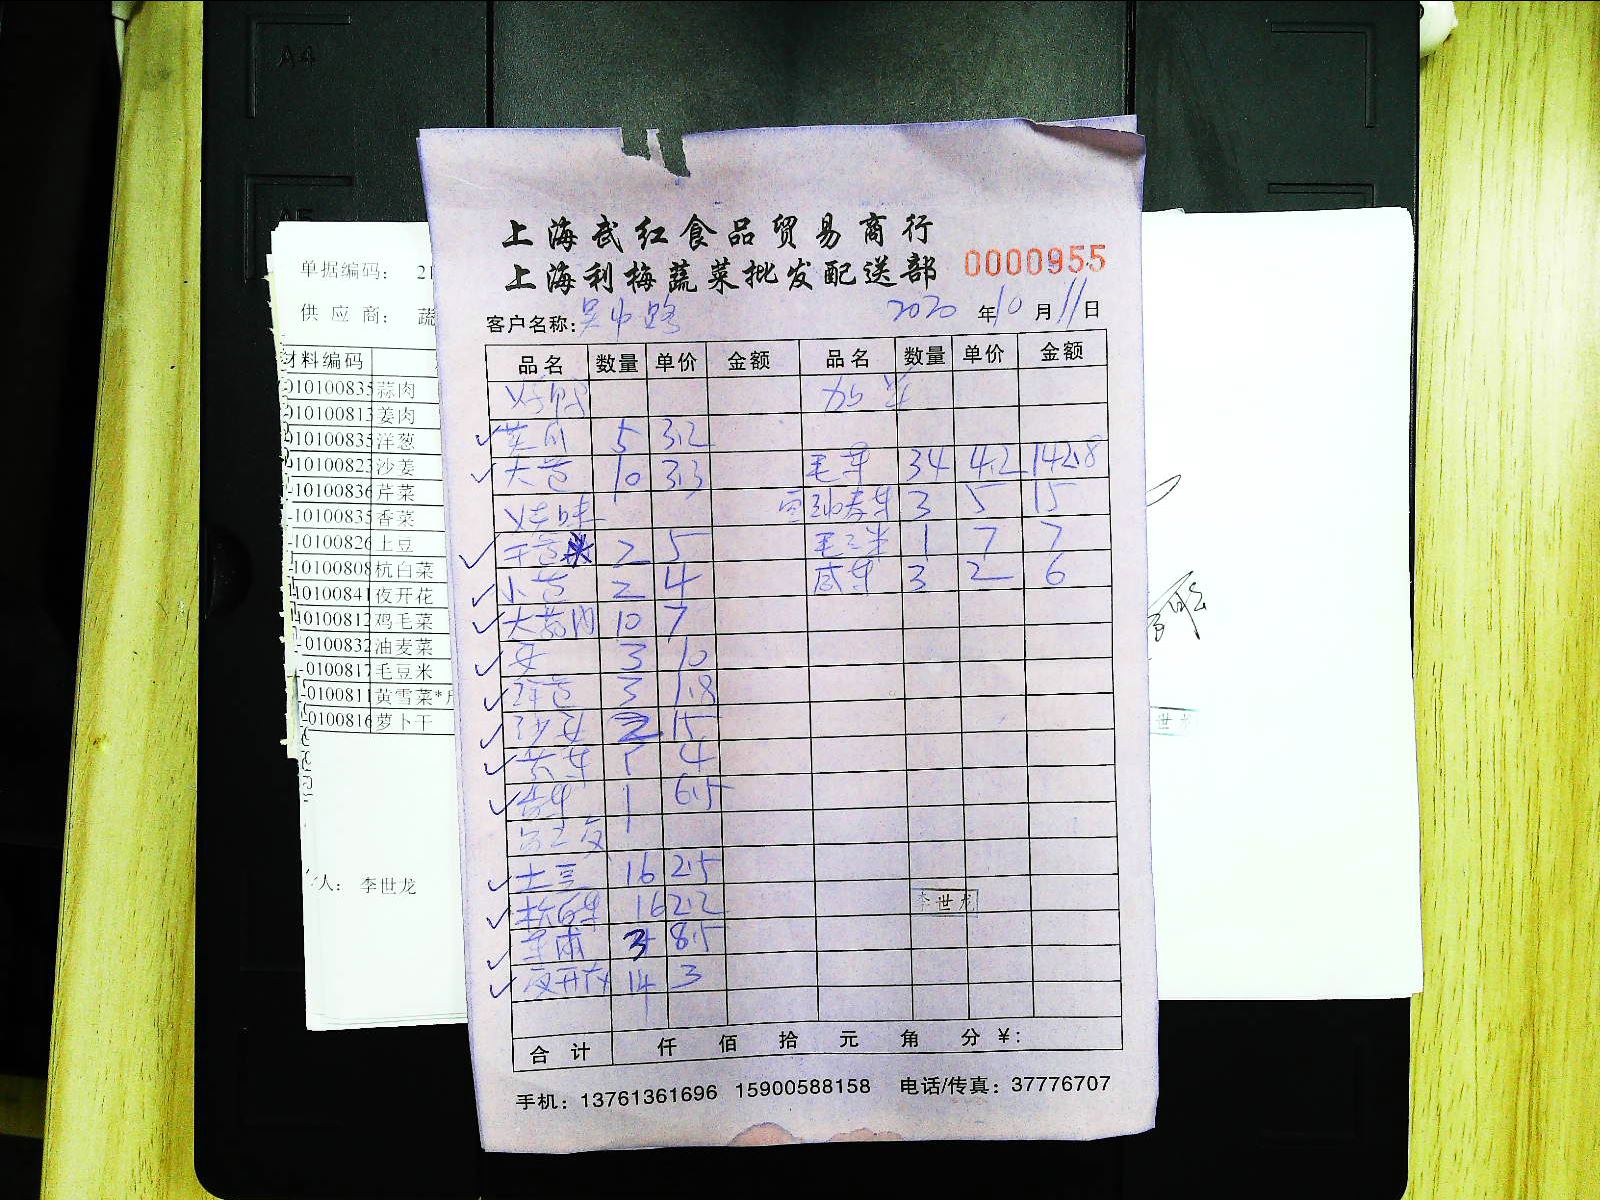 A4
A5
上海武红食品贸易商行
上海利梅蔬菜批发配送部
0000955
客户名称：吴中路 2020年10月11日
品名 数量 单价 金额 品名 数量 单价 金额
5 3.2
大葱 10 3.3 毛菜 34 4.2 142.8
烧味 3 5 15
干葱 2 5 毛豆米 1 7 7
小葱 2 4 咸菜 3 2 6
大蒜肉 10 7
3 10
洋葱 3 1.8
沙姜 2 15
4
1 6.5
土豆 16 2.5
杭白菜 16 2.2
3 8.5
夜开花 14 3
李世龙
合计 仟 佰 拾 元 角 分 ￥：
手机：13761361696 15900588158 电话/传真：37776707
单据编码： 21
供应商： 蔬
材料编码
010100835 蒜肉
010100813 姜肉
010100835 洋葱
010100823 沙姜
-10100836 芹菜
-10100835 香菜
-10100826 土豆
-10100808 杭白菜
10100841 夜开花
10100812 鸡毛菜
-0100832 油麦菜
-0100817 毛豆米
-0100811 黄雪菜*
-0100816 萝卜干
人： 李世龙